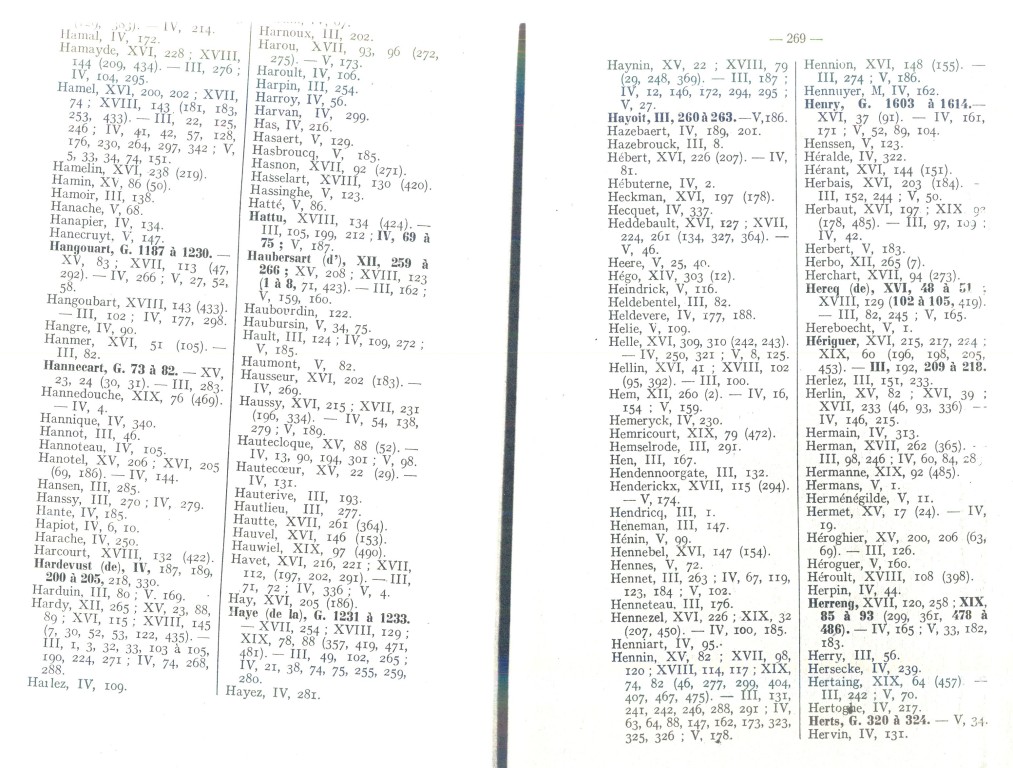 IV, 214.
Hamal, IV, 172.
Hamayde, XVI, 228 ; XVIII,
144 (209, 434). — III, 276 ;
IV, 104, 295.
Hamel, XVI, 200, 202 ; XVII,
74 ; XVIII, 143 (181, 183,
253, 433). — III, 22, 125,
246 ; IV, 41, 42, 57, 128,
176, 230, 264, 297, 342 ; V,
5, 33, 34, 74, 151.
Hamelin, XVI, 238 (219).
Hamin, XV, 86 (50).
Hamoir, III, 138.
Hanache, V, 68.
Hanapier, IV, 134.
Hanecruyt, V, 147.
Hangouart, G. 1187 à 1230. —
XV, 83 ; XVII, 113 (47,
292). — IV, 266 ; V, 27, 52,
58.
Hangoubart, XVIII, 143 (433).
— III, 102 ; IV, 177, 298.
Hangre, IV, 90.
Hanmer, XVI, 51 (105). —
III, 82.
Hannecart, G. 73 à 82. — XV,
23, 24 (30, 31). — III, 283.
Hannedouche, XIX, 76 (469).
— IV, 4.
Hannique, IV, 340.
Hannot, III, 46.
Hannoteau, IV, 105.
Hanotel, XV, 206 ; XVI, 205
(69, 186). — IV, 144.
Hansen, III, 285.
Hanssy, III, 270 ; IV, 279.
Hante, IV, 185.
Hapiot, IV, 6, 10.
Harache, IV, 250.
Harcourt, XVIII, 132 (422).
Hardevust (de), IV, 187, 189,
200 à 205, 218, 330.
Harduin, III, 80 ; V. 169.
Hardy, XII, 265 ; XV, 23, 88,
89 ; XVI, 115 ; XVIII, 145
(7, 30, 52, 53, 122, 435). —
III, 1, 3, 32, 33, 103 à 105,
190, 224, 271 ; IV, 74, 268,
288.
Harlez, IV, 109.
Harnoux, III, 202.
Harou, XVII, 93, 96 (272,
275). — V, 173.
Haroult, IV, 106.
Harpin, III, 254.
Harroy, IV, 56.
Harvan, IV, 299.
Has, IV, 216.
Hasaert, V, 129.
Hasbroucq, V, 185.
Hasnon, XVII, 92 (271).
Hasselart, XVIII, 130 (420).
Hassinghe, V, 123.
Hatté, V, 86.
Hattu, XVIII, 134 (424). —
III, 105, 199, 212 ; IV, 69 à
75 ; V, 187.
Haubersart (d'), XII, 259 à
266 ; XV, 208 ; XVIII, 123
(1 à 8, 71, 423). — III, 162 ;
V, 159, 160.
Haubourdin, 122.
Haubursin, V, 34, 75.
Hault, III, 124 ; IV, 109, 272 ;
V, 185.
Haumont, V, 82.
Hausseur, XVI, 202 (183). —
IV, 269.
Haussy, XVI, 215 ; XVII, 231
(196, 334). — IV, 54, 138,
279 ; V, 189.
Hautecloque, XV, 88 (52). —
IV, 13, 90, 194, 301 ; V, 98.
Hautecœur, XV, 22 (29). —
IV, 131.
Hauterive, III, 193.
Hautlieu, III, 277.
Hautte, XVII, 261 (364).
Hauvel, XVI, 146 (153).
Hauwiel, XIX, 97 (490).
Havet, XVI, 216, 221 ; XVII,
112, (197, 202, 291). — III,
71, 72 ; IV, 336 ; V, 4.
Hay, XVI, 205 (186).
Haye (de la), G. 1231 à 1233.
— XVII, 254 ; XVIII, 129 ;
XIX, 78, 88 (357, 419, 471,
481). — III, 49, 102, 265 ;
IV, 21, 38, 74, 75, 255, 259,
280.
Hayez, IV, 281.
— 269 —
Haynin, XV, 22 ; XVIII, 79
(29, 248, 369). — III, 187 ;
IV, 12, 146, 172, 294, 295 ;
V, 27.
Hayoit, III, 260 à 263. — V, 186.
Hazebaert, IV, 189, 201.
Hazebrouck, III, 8.
Hébert, XVI, 226 (207). — IV,
81.
Hébuterne, IV, 2.
Heckman, XVI, 197 (178).
Hecquet, IV, 337.
Heddebault, XVI, 127 ; XVII,
224, 261 (134, 327, 364). —
V, 46.
Heere, V, 25, 40.
Hégo, XIV, 303 (12).
Heindrick, V, 116.
Heldebentel, III, 82.
Heldevere, IV, 177, 188.
Helie, V, 109.
Helle, XVI, 309, 310 (242, 243).
— IV, 250, 321 ; V, 8, 125.
Hellin, XVI, 41 ; XVIII, 102
(95, 392). — III, 100.
Hem, XII, 260 (2). — IV, 16,
154 ; V, 159.
Hemeryck, IV, 230.
Hemricourt, XIX, 79 (472).
Hemselrode, III, 291.
Hen, III, 167.
Hendennoorgate, III, 132.
Henderickx, XVII, 115 (294).
— V, 174.
Hendricq, III, 1.
Heneman, III, 147.
Hénin, V, 99.
Hennebel, XVI, 147 (154).
Hennes, V, 72.
Hennet, III, 263 ; IV, 67, 119,
123, 184 ; V, 102.
Henneteau, III, 176.
Hennezel, XVI, 226 ; XIX, 32
(207, 450). — IV, 100, 185.
Henniart, IV, 95.
Hennin, XV, 82 ; XVII, 98,
120 ; XVIII, 114, 117 ; XIX,
74, 82 (46, 277, 299, 404,
407, 467, 475). — III, 131,
241, 242, 246, 288, 291 ; IV,
63, 64, 88, 147, 162, 173, 323,
325, 326 ; V, 178.
Hennion, XVI, 148 (155). —
III, 274 ; V, 186.
Hennuyer, M, IV, 162.
Henry, G. 1603 à 1614. —
XVI, 37 (91). — IV, 161,
171 ; V, 52, 89, 104.
Henssen, V, 123.
Héralde, IV, 322.
Hérant, XVI, 144 (151).
Herbais, XVI, 203 (184). -
III, 152, 244 ; V, 50.
Herbaut, XVI, 197 ; XIX
(178, 485). — III, 97, 109 ;
IV, 42.
Herbert, V, 183.
Herbo, XII, 265 (7).
Herchart, XVII, 94 (273).
Herecq (de), XVI, 48 à 51 ;
XVIII, 129 (102 à 105, 419).
— III, 82, 245 ; V, 165.
Hereboecht, V, 1.
Hériguer, XVI, 215, 217, 224 ;
XIX, 60 (196, 198, 205,
453). — III, 192, 209 à 218.
Herlez, III, 151, 233.
Herlin, XV, 82 ; XVI, 39 ;
XVII, 233 (46, 93, 336) —
IV, 146, 215.
Hermain, IV, 313.
Herman, XVII, 262 (365). -
III, 98, 246 ; IV, 60, 84, 28
Hermanne, XIX, 92 (485).
Hermans, V, 1.
Herménégilde, V, 11.
Hermet, XV, 17 (24). — IV,
19.
Héroghier, XV, 200, 206 (63,
69). — III, 126.
Héroguer, V, 160.
Héroult, XVIII, 108 (398).
Herpin, IV, 44.
Herreng, XVII, 120, 258 ; XIX,
85 à 93 (299, 361, 478 à
486). — IV, 165 ; V, 33, 182,
183.
Herry, III, 56.
Hersecke, IV, 239.
Hertaing, XIX, 64 (457) —
III, 242 ; V, 70.
Hertoghe, IV, 217.
Herts, G. 320 à 324. — V, 34.
Hervin, IV, 131.